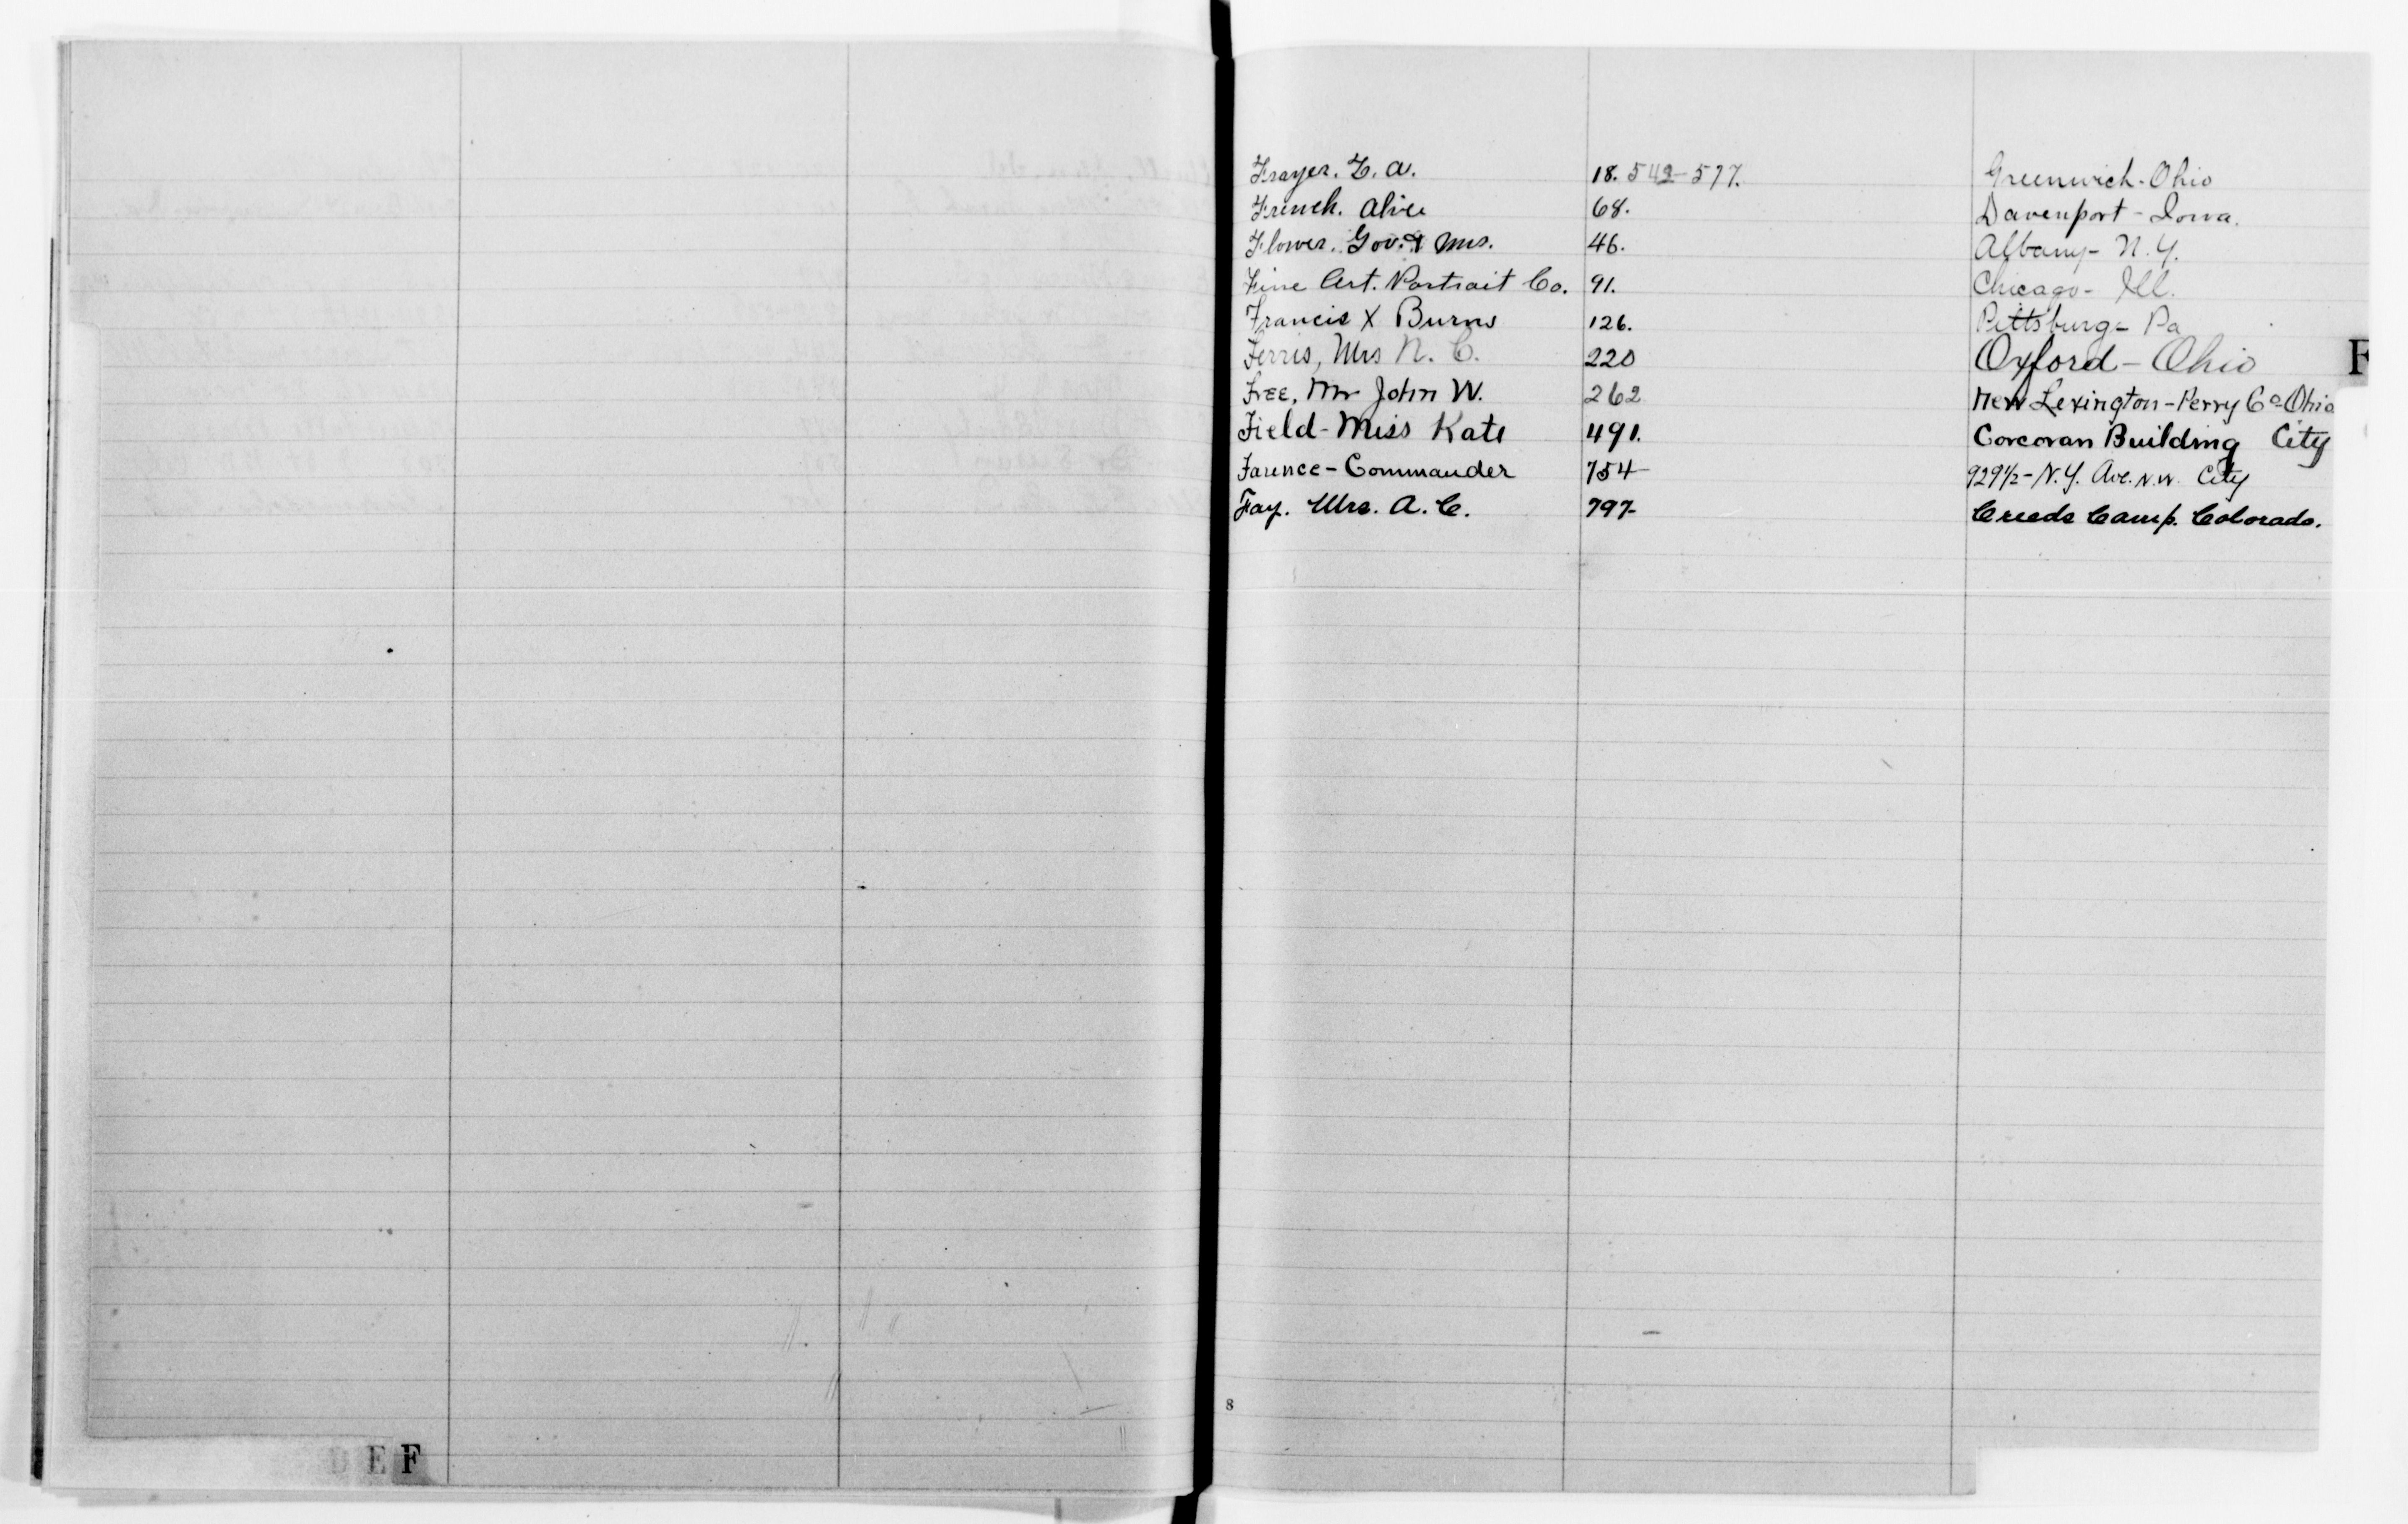 Frayer. Z. A. 18. 542-577. Greenwich - Ohio
French. Alice 68. Davenport - Iowa.
Flower. Gov. & Mrs. 46. Albany - N.Y.
Fine Art. Portrait Co. 91. Chicago - Ill.
Francis X Burns 126. Pittsburg - Pa
Ferris, Mrs N. C. 220 Oxford - Ohio
F
Free, Mr John W. 262 New Lexington - Perry Co - Ohio
Field - Miss Kate 491. Corcoran Building City
- Commander 754 929 1/2 - N.Y. Ave. N.W. City
Fay. Mrs. A. C. 797- Creede Camp. Colorado.
8
D E F